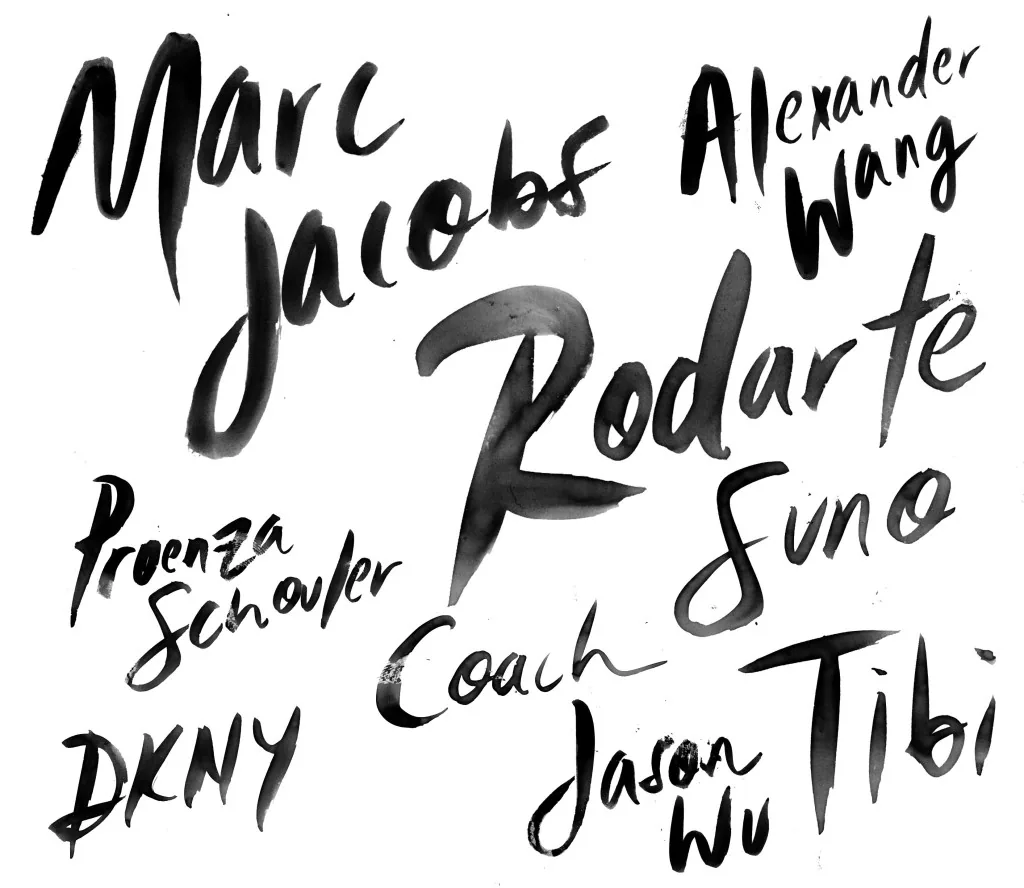 Marc
Jacobs
Alexander
Wang
Rodarte
Suno
Proenza
Schouler
Coach
Tibi
DKNY
Jason
Wu